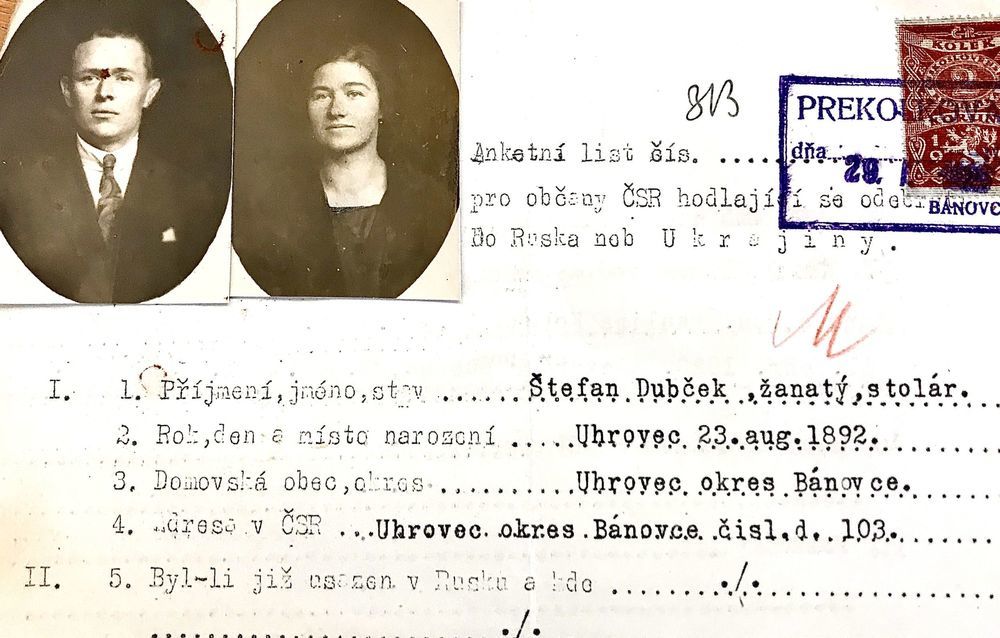 813
Anketní list čís. ..........
pro občany ČSR hodlající se odebrati
Do Ruska neb Ukrajiny.
PREKO
dňa
29.
BÁNOVC
KOLEK
2
KORUN
M
I. 1. Příjmení,jméno,stav ..... Štefan Dubček ,žanatý,stolár.
2. Rok,den a místo narození ..... Uhrovec 23.aug.1892.
3. Domovská obec,okres .......... Uhrovec okres Bánovce.
4. Adresa v ČSR ...Uhrovec okres Bánovce čisl.d. 103.
II. 5. Byl-li již usazen v Rusku a kde ........./.
........................./.